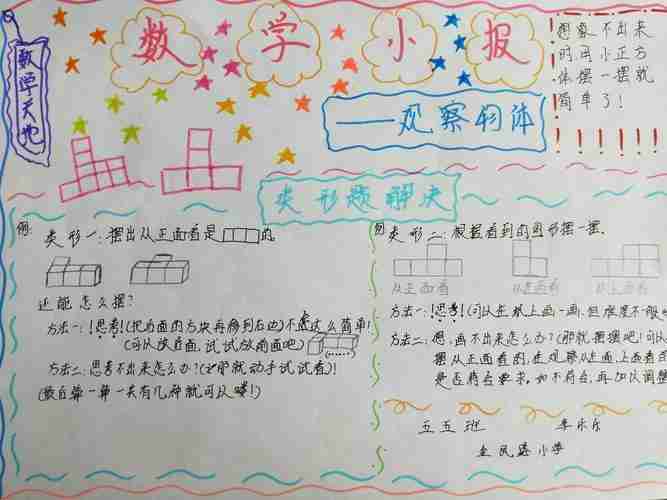 数学小报
数学天地
——观察物体
想象不出来
时用小正方
体摆一摆就
简单了!
类形题解决
例:
类形一:摆出从正面看是
的。
还能怎么摆?
方法一:!思考!(把后面的方块再移到右边)不过这么简单!
(可以放后面,试试放前面吧)
方法二:思考不出来怎么办?(那就动手试试看)!
(最后算一算一共有几种就可以喽!)
例
类形二:根据看到的图形摆一摆。
从正面看
从左面看
从上面看
方法一:!思考!(可以在纸上画一画,但难度不一般
方法二:想,画不出来怎么办?(那就摆摆吧!可以
摆从正面看的,在观察从左面,上面看的
是否符合要求。如不符合,再加以调整
五五班
李乐乐
金凤路小学